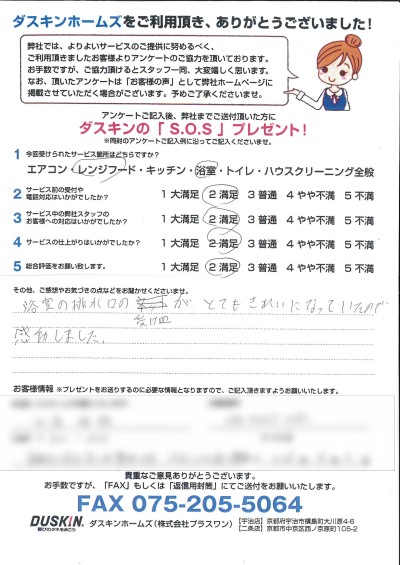 ダスキンホームズをご利用頂き、ありがとうございました!
弊社では、よりよいサービスのご提供に努めるべく、
ご利用頂きましたお客様よりアンケートのご協力を頂いております。
お手数ですが、ご協力頂けるとスタッフ一同、大変嬉しく思います。
なお、頂いたアンケートは「お客様の声」として弊社ホームページに
掲載させていただく場合がございます。予めご了承くださいませ。
アンケートご記入後、弊社までご送付頂いた方に
ダスキンの「 S.O.S 」プレゼント!
※同封のアンケートご記入例に沿ってご記入くださいませ。
1 今回受けられたサービス箇所はどちらですか?
エアコン・レンジフード・キッチン・浴室・トイレ・ハウスクリーニング全般
2 サービス前の受付や
電話対応はいかがでしたか? 1 大満足 2 満足 3 普通 4 やや不満 5 不満
3 サービス中の弊社スタッフの
お客様への対応はいかがでしたか? 1 大満足 2 満足 3 普通 4 やや不満 5 不満
4 サービスの仕上がりはいかがでしたか? 1 大満足 2 満足 3 普通 4 やや不満 5 不満
5 総合評価をお願い致します。 1 大満足 2 満足 3 普通 4 やや不満 5 不満
その他、ご感想やお気づきの点などをお聞かせくださいませ。
浴室の排水口の が とてもきれいになっていたので
受け皿
感動しました。
お客様情報 ※プレゼントをお送りするのに必要な情報となりますので、ご記入頂きますようお願いいたします。
貴重なご意見ありがとうございます。
お手数ですが、「FAX」もしくは「返信用封筒」にてご送付をお願いいたします。
FAX 075-205-5064
DUSKIN 喜びのタネをまこう ダスキンホームズ(株式会社プラスワン) 【宇治店】京都府宇治市槇島町大川原4-6
【二条店】京都市中京区西ノ京原町105-2